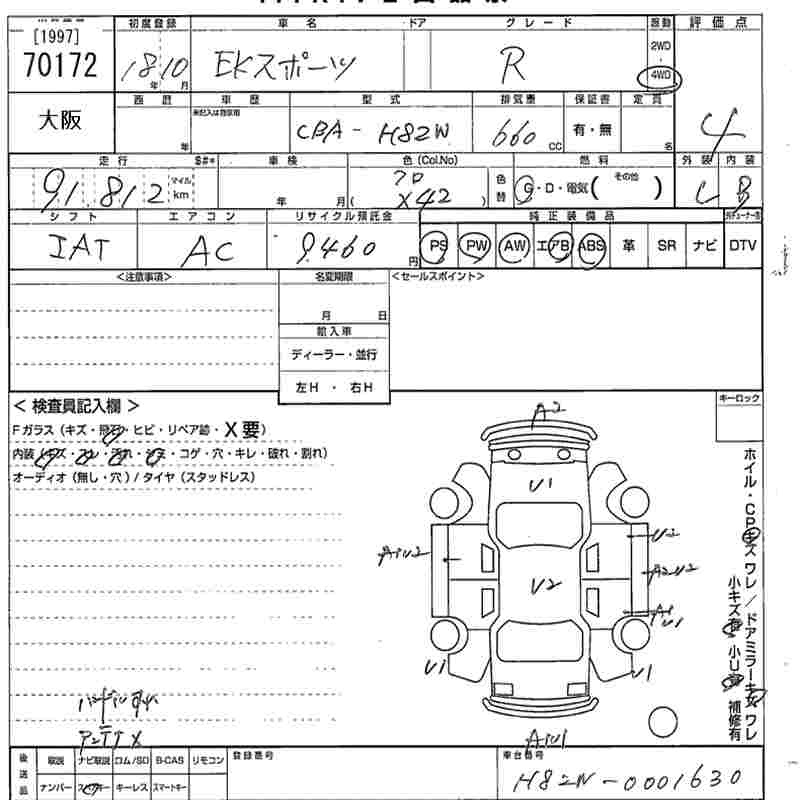 [1997]
70172
初度登録 車名 ドア グレード 駆動 評価点
18年10月 EKスポーツ R 2WD・4WD 4
大阪
西暦 車歴 型式 排気量 保証書 定員
未記入は自家用
年 CBA-H82W 660 CC 有・無 名
走行 $#* 車検 色(Col.No) 燃料 外装 内装
91,812 マイル km 年 月 ( X42 ) 色替 G・D・電気( その他 ) C B
シフト エアコン リサイクル預託金 純正装備品
IAT AC 9460円 PS PW AW エアB ABS 革 SR ナビ DTV
<注意事項> 名変期限 <セールスポイント>
月 日
輸入車
ディーラー・並行
左H・右H
<検査員記入欄> キーロック
Fガラス(キズ・飛石・ヒビ・リペア跡・X要)
内装(キズ・スレ・汚れ・シミ・コゲ・穴・キレ・破れ・割れ)
オーディオ(無し・穴)/タイヤ(スタッドレス)
A2
U1
U2
A1U2
A2U2
U2
A1
U1
U1
U1
A1U1
ホイル・CPキズ ワレ/ドアミラーキズ ワレ
小キズ有 小U有 補修有
アンテナ X
後送品 取説 ナビ取説 ロム/SD B-CAS リモコン 登録番号 車台番号
ナンバー スペアキー キーレス スマートキー H82W-0001630